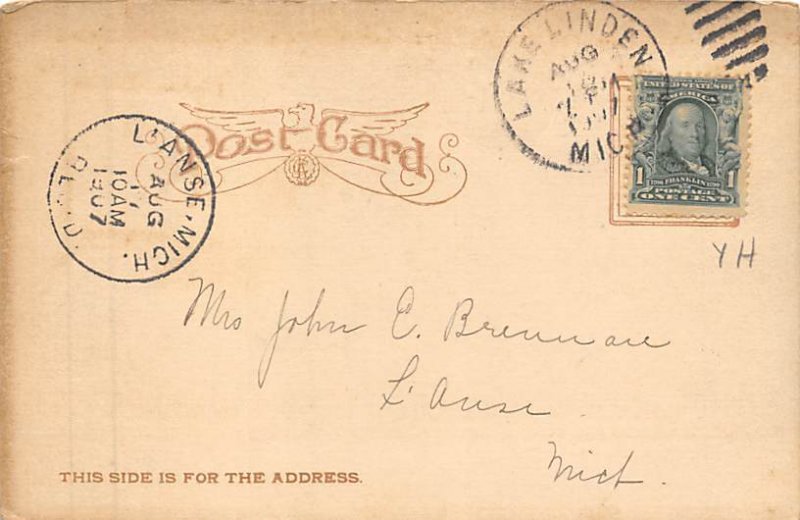 LAKE LINDEN
AUG
MICH
UNITED STATES OF
AMERICA
1 FRANKLIN 1
POSTAGE
ONE CENT
Post Card
L'ANSE, MICH.
AUG
17
10AM
1907
REC'D.
YH
Mrs John C. Brennan
L'Anse
Mich.
THIS SIDE IS FOR THE ADDRESS.